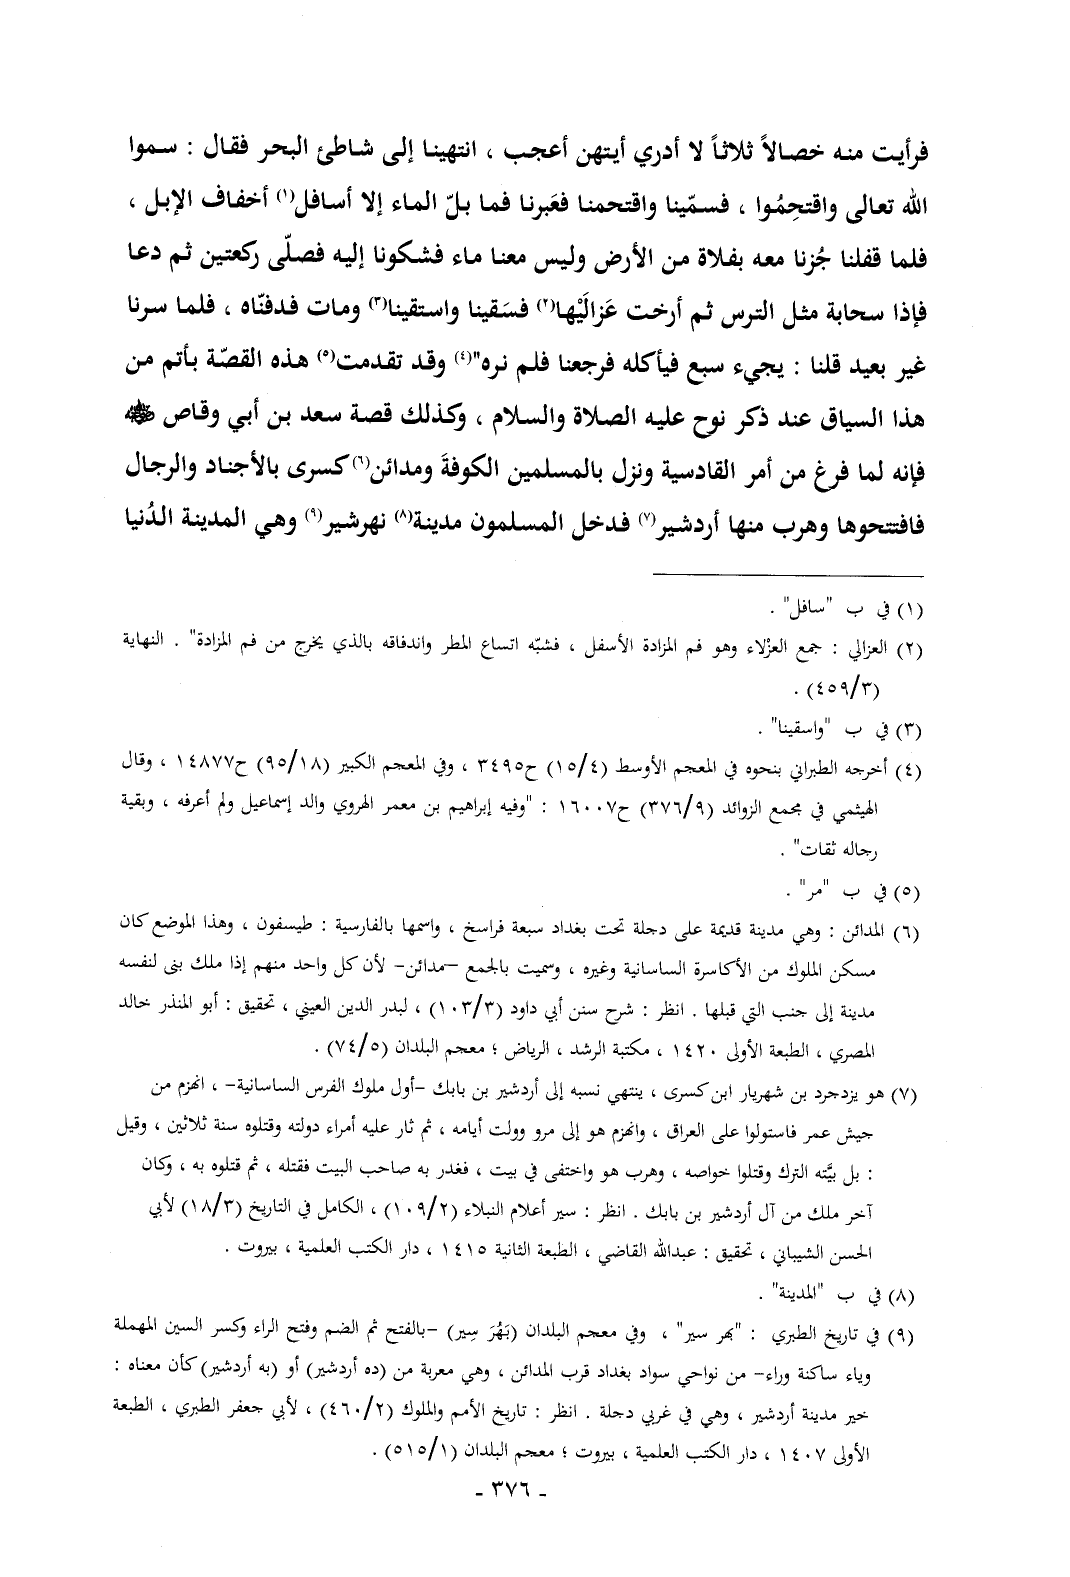 فرأيت منه خصالاً ثلاثاً لا أدري أيتهن أعجب ، انتهينا إلى شاطئ البحر فقال : سموا
الله تعالى واقتحِمُوا ، فسمّينا واقتحمنا فعَبرنا فما بلّ الماء إلا أسافل(١) أخفاف الإبل ،
فلما قفلنا جُزنا معه بفلاة من الأرض وليس معنا ماء فشكونا إليه فصلّى ركعتين ثم دعا
فإذا سحابة مثل الترس ثم أرخت عَزالَيْها(٢) فسَقينا واستقينا(٣) ومات فدفنّاه ، فلما سرنا
غير بعيد قلنا : يجيء سبع فيأكله فرجعنا فلم نره"(٤) وقد تقدمت(٥) هذه القصّة بأتم من
هذا السياق عند ذكر نوح عليه الصلاة والسلام ، وكذلك قصة سعد بن أبي وقاص ﷺ
فإنه لما فرغ من أمر القادسية ونزل بالمسلمين الكوفةَ ومدائن(٦) كسرى بالأجناد والرجال
فافتتحوها وهرب منها أردشير(٧) فدخل المسلمون مدينة(٨) نهرشير(٩) وهي المدينة الدُنيا
(١) في ب "سافل" .
(٢) العزالي : جمع العزْلاء وهو فم المزادة الأسفل ، فشبّه اتساع المطر واندفاقه بالذي يخرج من فم المزادة" . النهاية
(٤٥٩/٣) .
(٣) في ب "واسقينا" .
(٤) أخرجه الطبراني بنحوه في المعجم الأوسط (١٥/٤) ح٣٤٩٥ ، وفي المعجم الكبير (٩٥/١٨) ح١٤٨٧٧ ، وقال
الهيثمي في مجمع الزوائد (٣٧٦/٩) ح١٦٠٠٧ : "وفيه إبراهيم بن معمر الهروي والد إسماعيل ولم أعرفه ، وبقية
رجاله ثقات" .
(٥) في ب "مر" .
(٦) المدائن : وهي مدينة قديمة على دجلة تحت بغداد سبعة فراسخ ، واسمها بالفارسية : طيسفون ، وهذا الموضع كان
مسكن الملوك من الأكاسرة الساسانية وغيره ، وسميت بالجمع –مدائن– لأن كل واحد منهم إذا ملك بنى لنفسه
مدينة إلى جنب التي قبلها . انظر : شرح سنن أبي داود (١٠٣/٣) ، لبدر الدين العيني ، تحقيق : أبو المنذر خالد
المصري ، الطبعة الأولى ١٤٢٠ ، مكتبة الرشد ، الرياض ؛ معجم البلدان (٧٤/٥) .
(٧) هو يزدجرد بن شهريار ابن كسرى ، ينتهي نسبه إلى أردشير بن بابك –أول ملوك الفرس الساسانية– ، انهزم من
جيش عمر فاستولوا على العراق ، وانهزم هو إلى مرو وولت أيامه ، ثم ثار عليه أمراء دولته وقتلوه سنة ثلاثين ، وقيل
: بل بيَّته الترك وقتلوا خواصه ، وهرب هو واختفى في بيت ، فغدر به صاحب البيت فقتله ، ثم قتلوه به ، وكان
آخر ملك من آل أردشير بن بابك . انظر : سير أعلام النبلاء (١٠٩/٢) ، الكامل في التاريخ (١٨/٣) لأبي
الحسن الشيباني ، تحقيق : عبدالله القاضي ، الطبعة الثانية ١٤١٥ ، دار الكتب العلمية ، بيروت .
(٨) في ب "المدينة" .
(٩) في تاريخ الطبري : "بهر سير" ، وفي معجم البلدان (بَهُرَ سِير) –بالفتح ثم الضم وفتح الراء وكسر السين المهملة
وياء ساكنة وراء– من نواحي سواد بغداد قرب المدائن ، وهي معربة من (ده أردشير) أو (به أردشير) كأن معناه :
خير مدينة أردشير ، وهي في غربي دجلة . انظر : تاريخ الأمم والملوك (٤٦٠/٢) ، لأبي جعفر الطبري ، الطبعة
الأولى ١٤٠٧ ، دار الكتب العلمية ، بيروت ؛ معجم البلدان (٥١٥/١) .
- ٣٧٦ -